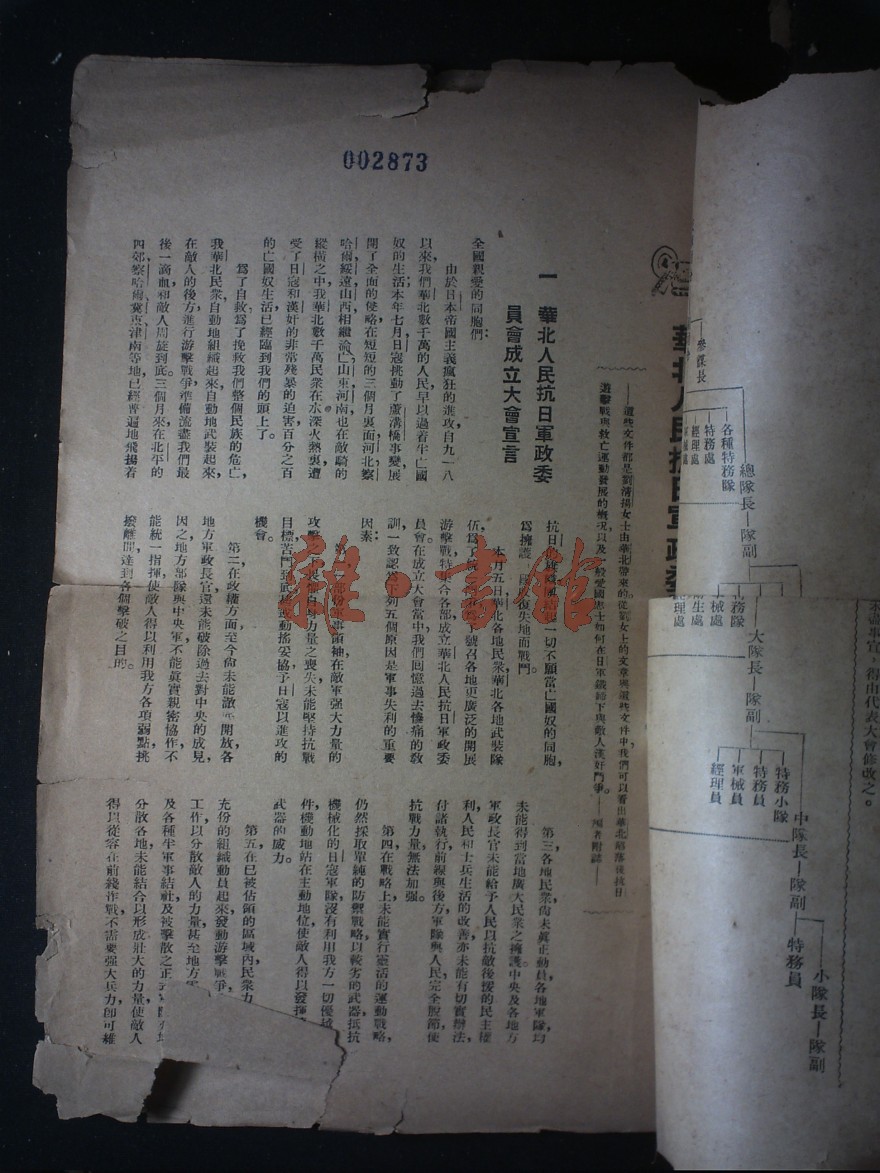 002873
華北人民抗日軍政委
——這些文件都是劉清揚女士由華北帶來的。從劉女士的文章與這些文件中,我們可以看出華北陷落後抗日
遊擊戰與救亡運動發展的概況,以及一般愛國志士如何在日軍鐵蹄下與敵人漢奸鬥爭。
一 華北人民抗日軍政委
員會成立大會宣言
全國親愛的同胞們:
由於日本帝國主義瘋狂的進攻,自九一八
以來,我們華北數千萬的人民,早以過着牛亡國
奴的生活;本年七月,日寇挑動了蘆溝橋事變,展
開了全面的侵略,在短短的三個月裏面,河北察
哈爾綏遠山西相繼淪亡,山東河南也在敵騎的
縱橫之中,我華北數千萬民衆在水深火熱裏,遭
受了日寇和漢奸的非常殘暴的迫害,百分之百
的亡國奴生活,已經臨到我們的頭上了。
爲了自救,爲了挽救我們整個民族的危亡,
我華北民衆,自動地組織起來,自動地武裝起來,
在敵人的後方進行游擊戰爭,準備流盡我們最
後一滴血,和敵人周旋到底。三個月來,在北平的
四郊,察哈爾冀東津南等地,已經普遍地飛揚着
抗日
一切不願當亡國奴的同胞,
爲擁護
復失地而戰鬥。
本月五日,華北各地民衆,華北各地武裝隊
伍,爲了
號召各地更廣泛的開展
游擊戰,特
合各部成立華北人民抗日軍政委
員會。在成立大會當中,我們回憶過去慘痛的敎
訓,一致認爲下列五個原因是軍事失利的重要
因素:
第一,一部份軍事領袖,在敵軍強大力量的
攻擊
力量之喪失,未能堅持抗戰
目標,苦鬥到底,
動搖妥協,予日寇以進攻的
機會。
第二,在政權方面,至今尙未能
開放,各
地方軍政長官還未能破除過去對中央的成見,
因之地方部隊與中央軍不能眞實親密協作,不
能統一指揮,使敵人得以利用我方各項弱點,挑
撥離間,達到各個擊破之目的。
第三,各地民衆,尙未眞正動員,各地軍隊,均
未能得到當地廣大民衆之擁護,中央及各地方
軍政長官未能給予人民以抗敵後援的民主權
利,人民和士兵生活的改善,亦未能有切實辦法,
付諸執行,前線與後方,軍隊與人民完全脫節,使
抗戰力量,無法加強。
第四,在戰略上,未能實行靈活的運動戰略,
仍然採取單純的防禦戰略,以較劣的武器,抵抗
機械化的日寇軍隊,沒有利用我方一切優
件,機動地站在主動地位,使敵人得以發揮
武器的威力。
第五,在已被佔領的區域內,民衆力
充份的組織動員起來,發動游擊戰爭
工作,以分散敵人的力量,甚至地方
及各種半軍事結社,及被擊散之正
分散各地,未能結合以形成壯大的力量,使敵人
得以從容在前綫作戰,不需要强大兵力,卽可維
參謀長
各種特務隊
特務處
經理處
總隊長—隊副
特務隊
械處
生處
理處
大隊長—隊副
特務小隊
特務員
軍械員
經理員
中隊長—隊副
特務員
小隊長—隊副
事宜,得由代表大會修改之。
雜·書館